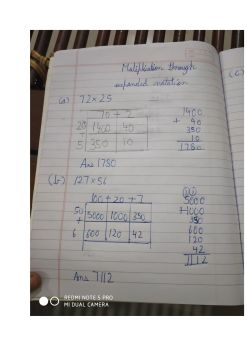 Multiplication through
expanded notation
(c)
(a) 72 x 25
70 + 2
20 1400 40
+
5 350 10
1400
+ 40
350
10
1780
Ans 1780
(b) 127 x 56
100 + 20 + 7
50 5000 1000 350
+
6 600 120 42
5000
+1000
350
600
120
42
7112
Ans 7112
REDMI NOTE 5 PRO
MI DUAL CAMERA